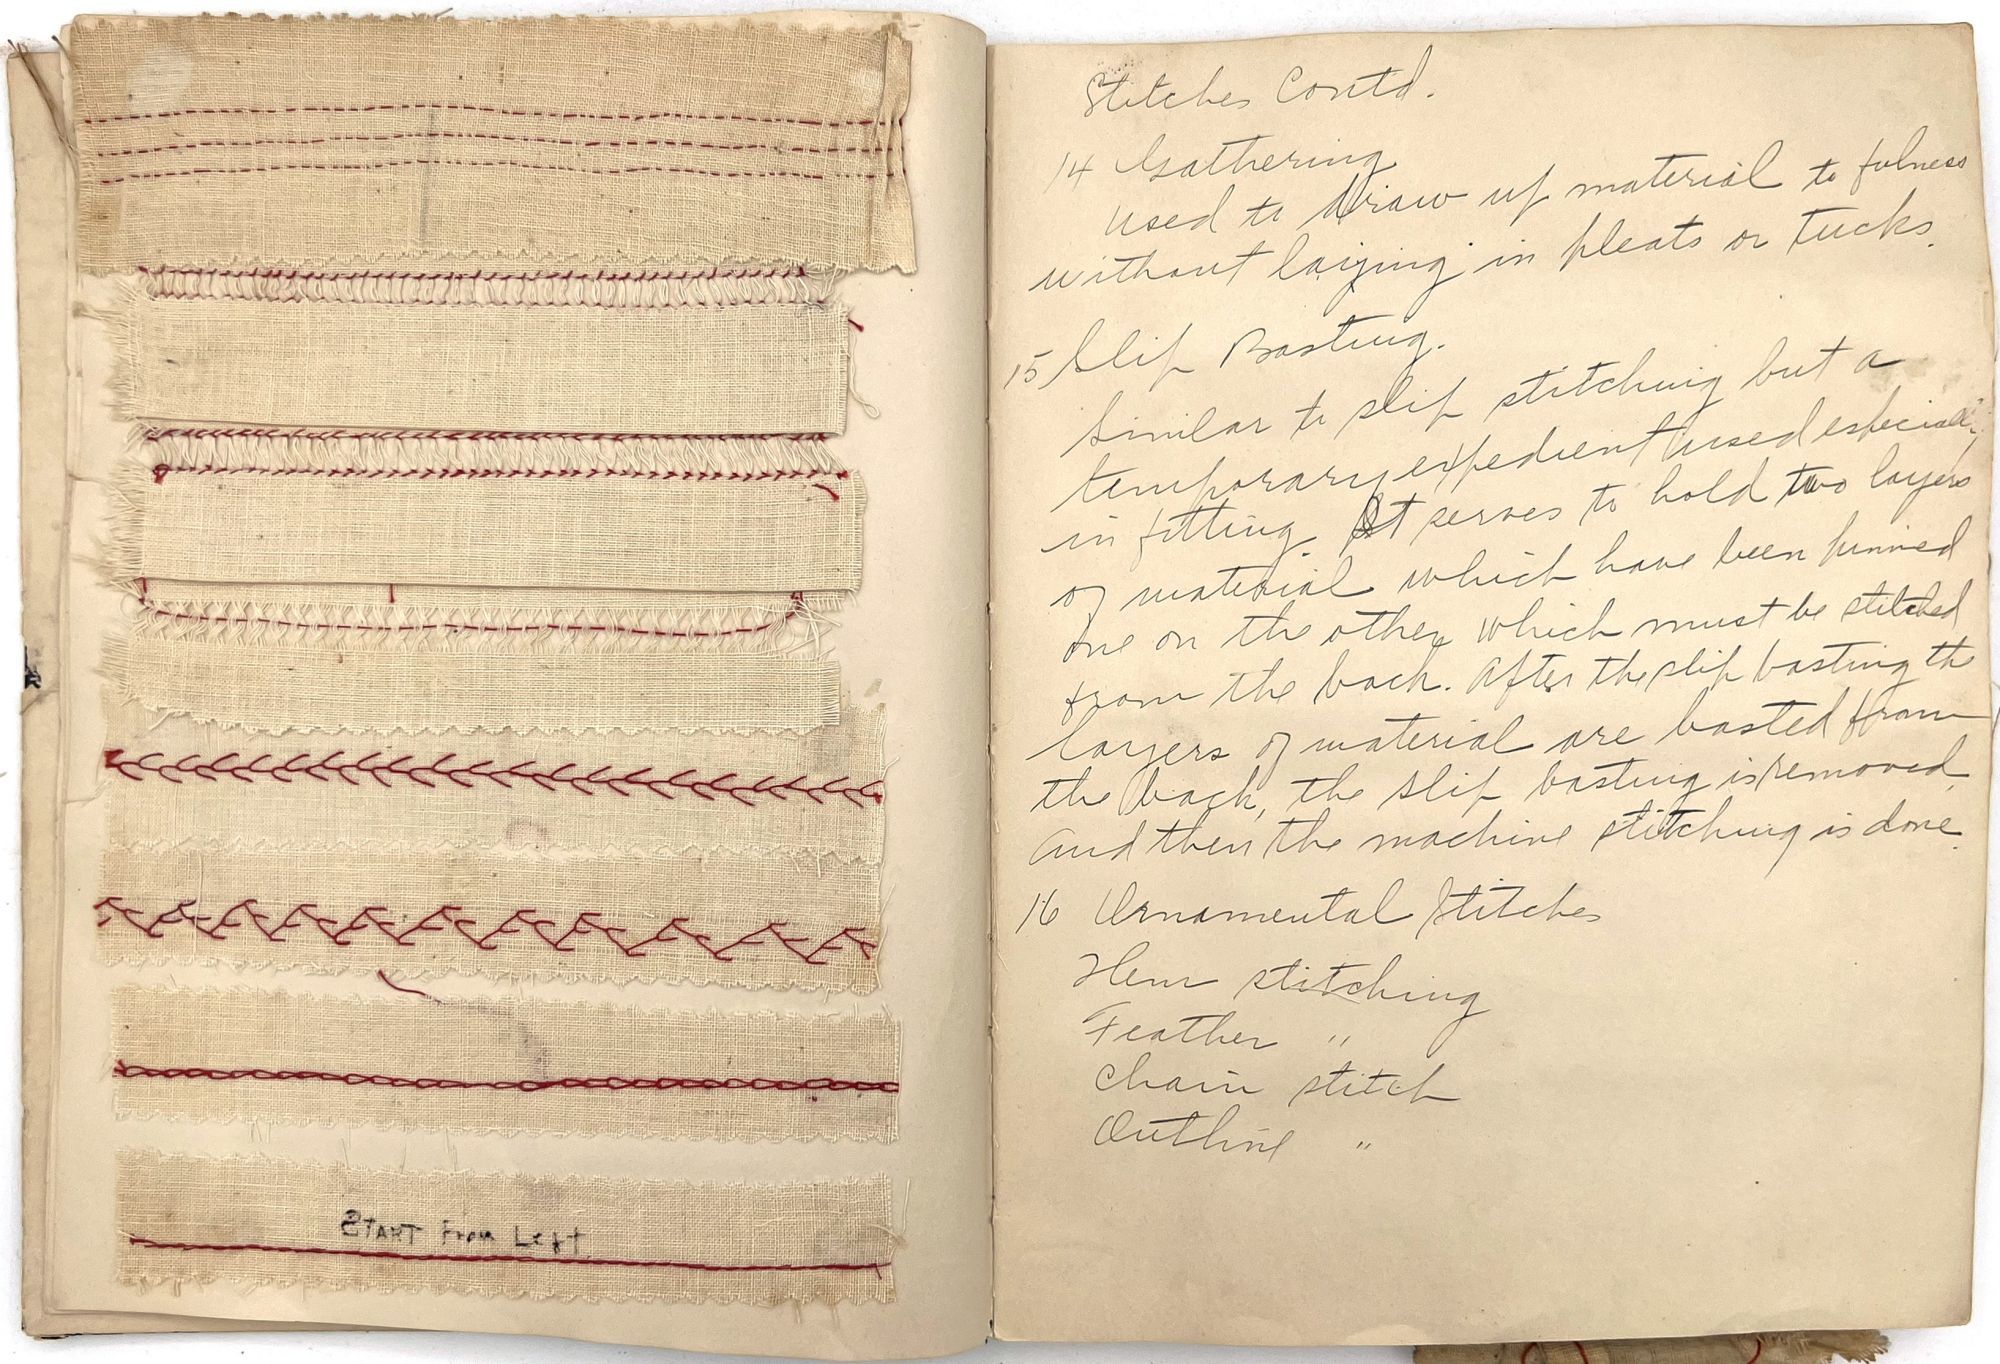 START From Left
Stitches Contd.
14 Gathering
used to draw up material to fulness
without laying in pleats or tucks.
15 Slip Basting.
Similar to slip stitching but a
temporary expedient used especially
in fitting. It serves to hold two layers
of material which have been pinned
one on the other which must be stitched
from the back. After the slip basting the
layers of material are basted from
the back, the slip basting is removed
and then the machine stitching is done.
16 Ornamental Stitches
Hem stitching
Feather "
Chain stitch
Outline "